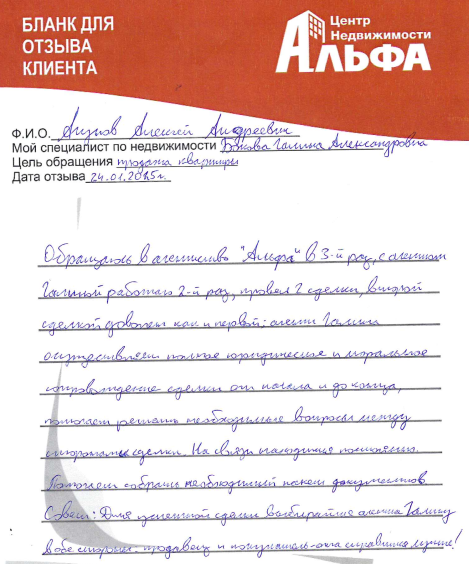 БЛАНК ДЛЯ
ОТЗЫВА
КЛИЕНТА
Центр
Недвижимости
АЛЬФА
Ф.И.О. Алексей Андреевич
Мой специалист по недвижимости Галина Александровна
Цель обращения продажа квартиры
Дата отзыва 24.01.2015г.
Обращаюсь в агентство "Альфа" в 3-й раз, с агентом
Галиной работаю 2-й раз, провел 2 сделки, второй
сделкой доволен как и первой: агент Галина
осуществляет полное юридическое и моральное
сопровождение сделки от начала и до конца,
помогает решать необходимые вопросы между
сторонами сделки. На связи находится постоянно.
Помогает собрать необходимый пакет документов.
Совет: Для успешной сделки выбирайте агента Галину
в обе стороны: продавец и покупатель - она справится лучше!